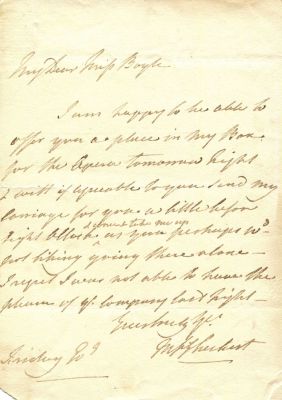 My Dear Miss Boyle
I am happy to be able to
offer you a place in my Box
for the Opera tomorrow Night
I will if agreable to you send my
Carriage for you a little before
Eight OClock & come & take me up
as you perhaps wd
not liking going there alone -
I regret I was not able to have the
pleasure of yr Company last Night -
yrs
Friday Evg